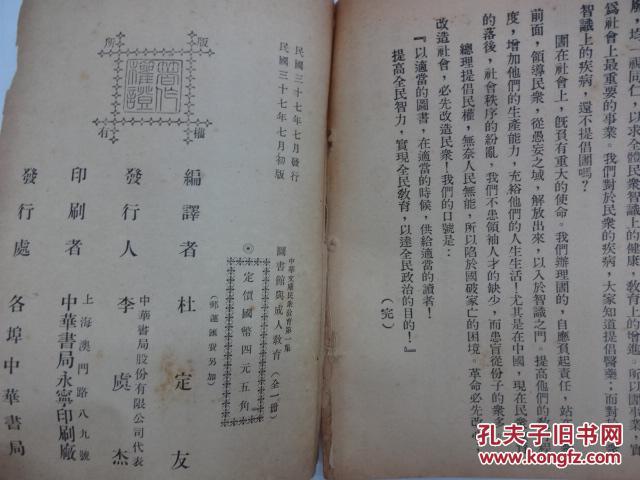 願，均一視同仁，以求全體民衆智識上的健康，教育上的增進。所以圕事業，實
爲社會上最重要的事業。我們對於民衆的疾病，大家知道提倡醫藥；而對於
智識上的疾病，還不提倡圕嗎？
圕在社會上，旣負有重大的使命。我們辦理圕的，自應負起責任，站在
前面，領導民衆，從愚妄之域，解放出來，以入於智識之門。提高他們的
度，增加他們的生產能力，充裕他們的人生生活！尤其是在中國，現在民
的落後，社會秩序的紛亂，我們不患領袖人才的缺少，而患盲從份子的衆
總理提倡民權，無奈人民無能，所以陷於國破家亡的困境。革命必先改心
改造社會，必先改造民衆！我們的口號是：
『以適當的圖書，在適當的時候，供給適當的讀者！
提高全民智力，實現全民敎育，以達全民政治的目的！』
（完）
民國三十七年七月發行
民國三十七年七月初版
中華文庫民衆敎育第一集
圖書館與成人敎育（全一冊）
◎定價國幣四元五角
（郵運匯費另加）
編譯者 杜定友
發行人 李虞杰
中華書局股份有限公司代表
印刷者 中華書局永寧印刷廠
上海澳門路八九號
發行處 各埠中華書局
版權所有
孔夫子旧书网